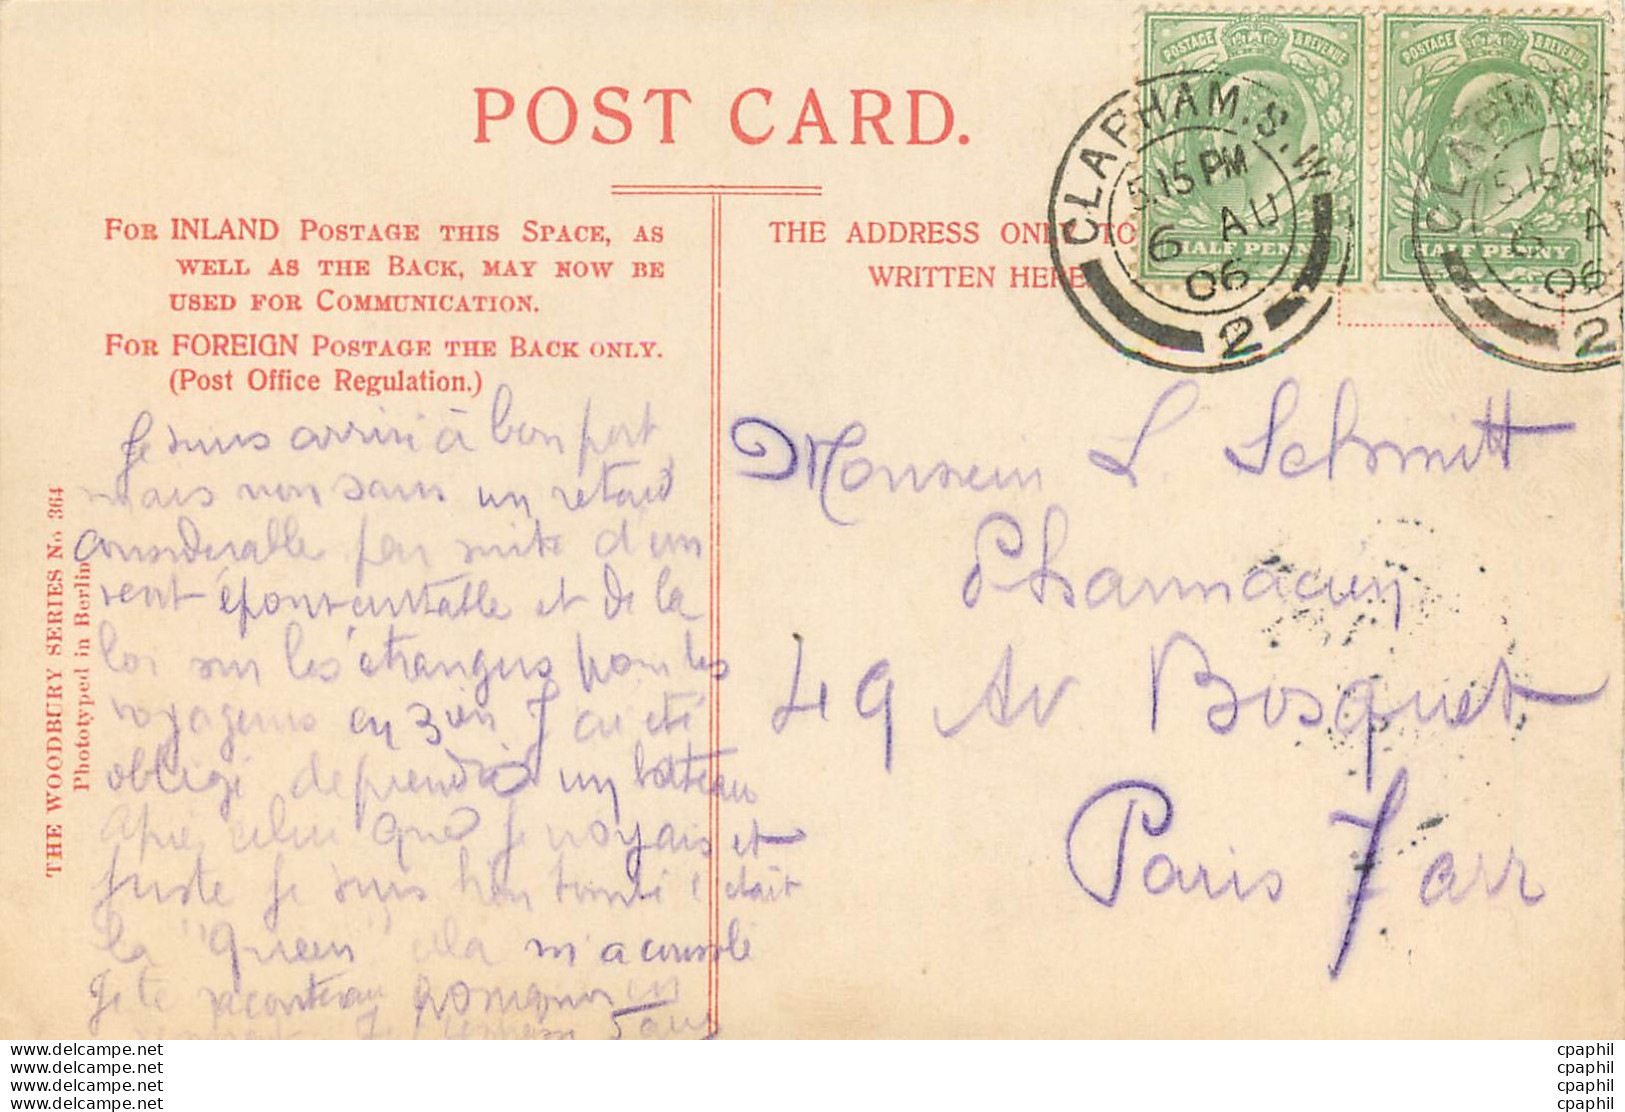 POST CARD.
FOR INLAND POSTAGE THIS SPACE, AS
WELL AS THE BACK, MAY NOW BE
USED FOR COMMUNICATION.
FOR FOREIGN POSTAGE THE BACK ONLY.
(Post Office Regulation.)
THE ADDRESS ONLY TO
WRITTEN HERE
POSTAGE & REVENUE
HALF PENNY
POSTAGE & REVENUE
HALF PENNY
CLAPHAM. S.W
5.15 PM
6 AU
06
2
CLAPHAM
5.15 PM
6 A
06
2
THE WOODBURY SERIES No. 364
Phototyped in Berlin
Je suis arrivé à bon port
mais non sans un retard
considerable par suite d'un
vent épouvantable et de la
loi sur les étrangers pour les
voyageurs en 3ien J'ai été
obligé de prendre un bateau
celui que je voyais et
juste je suis bien tombé c'etait
la "Queen" cela m'a consolé
Je te raconterai
Monsieur L. Schmitt
Pharmacien
49 Av Bosquet
Paris 7 arr
www.delcampe.net
www.delcampe.net
www.delcampe.net
www.delcampe.net
cpaphil
cpaphil
cpaphil
cpaphil